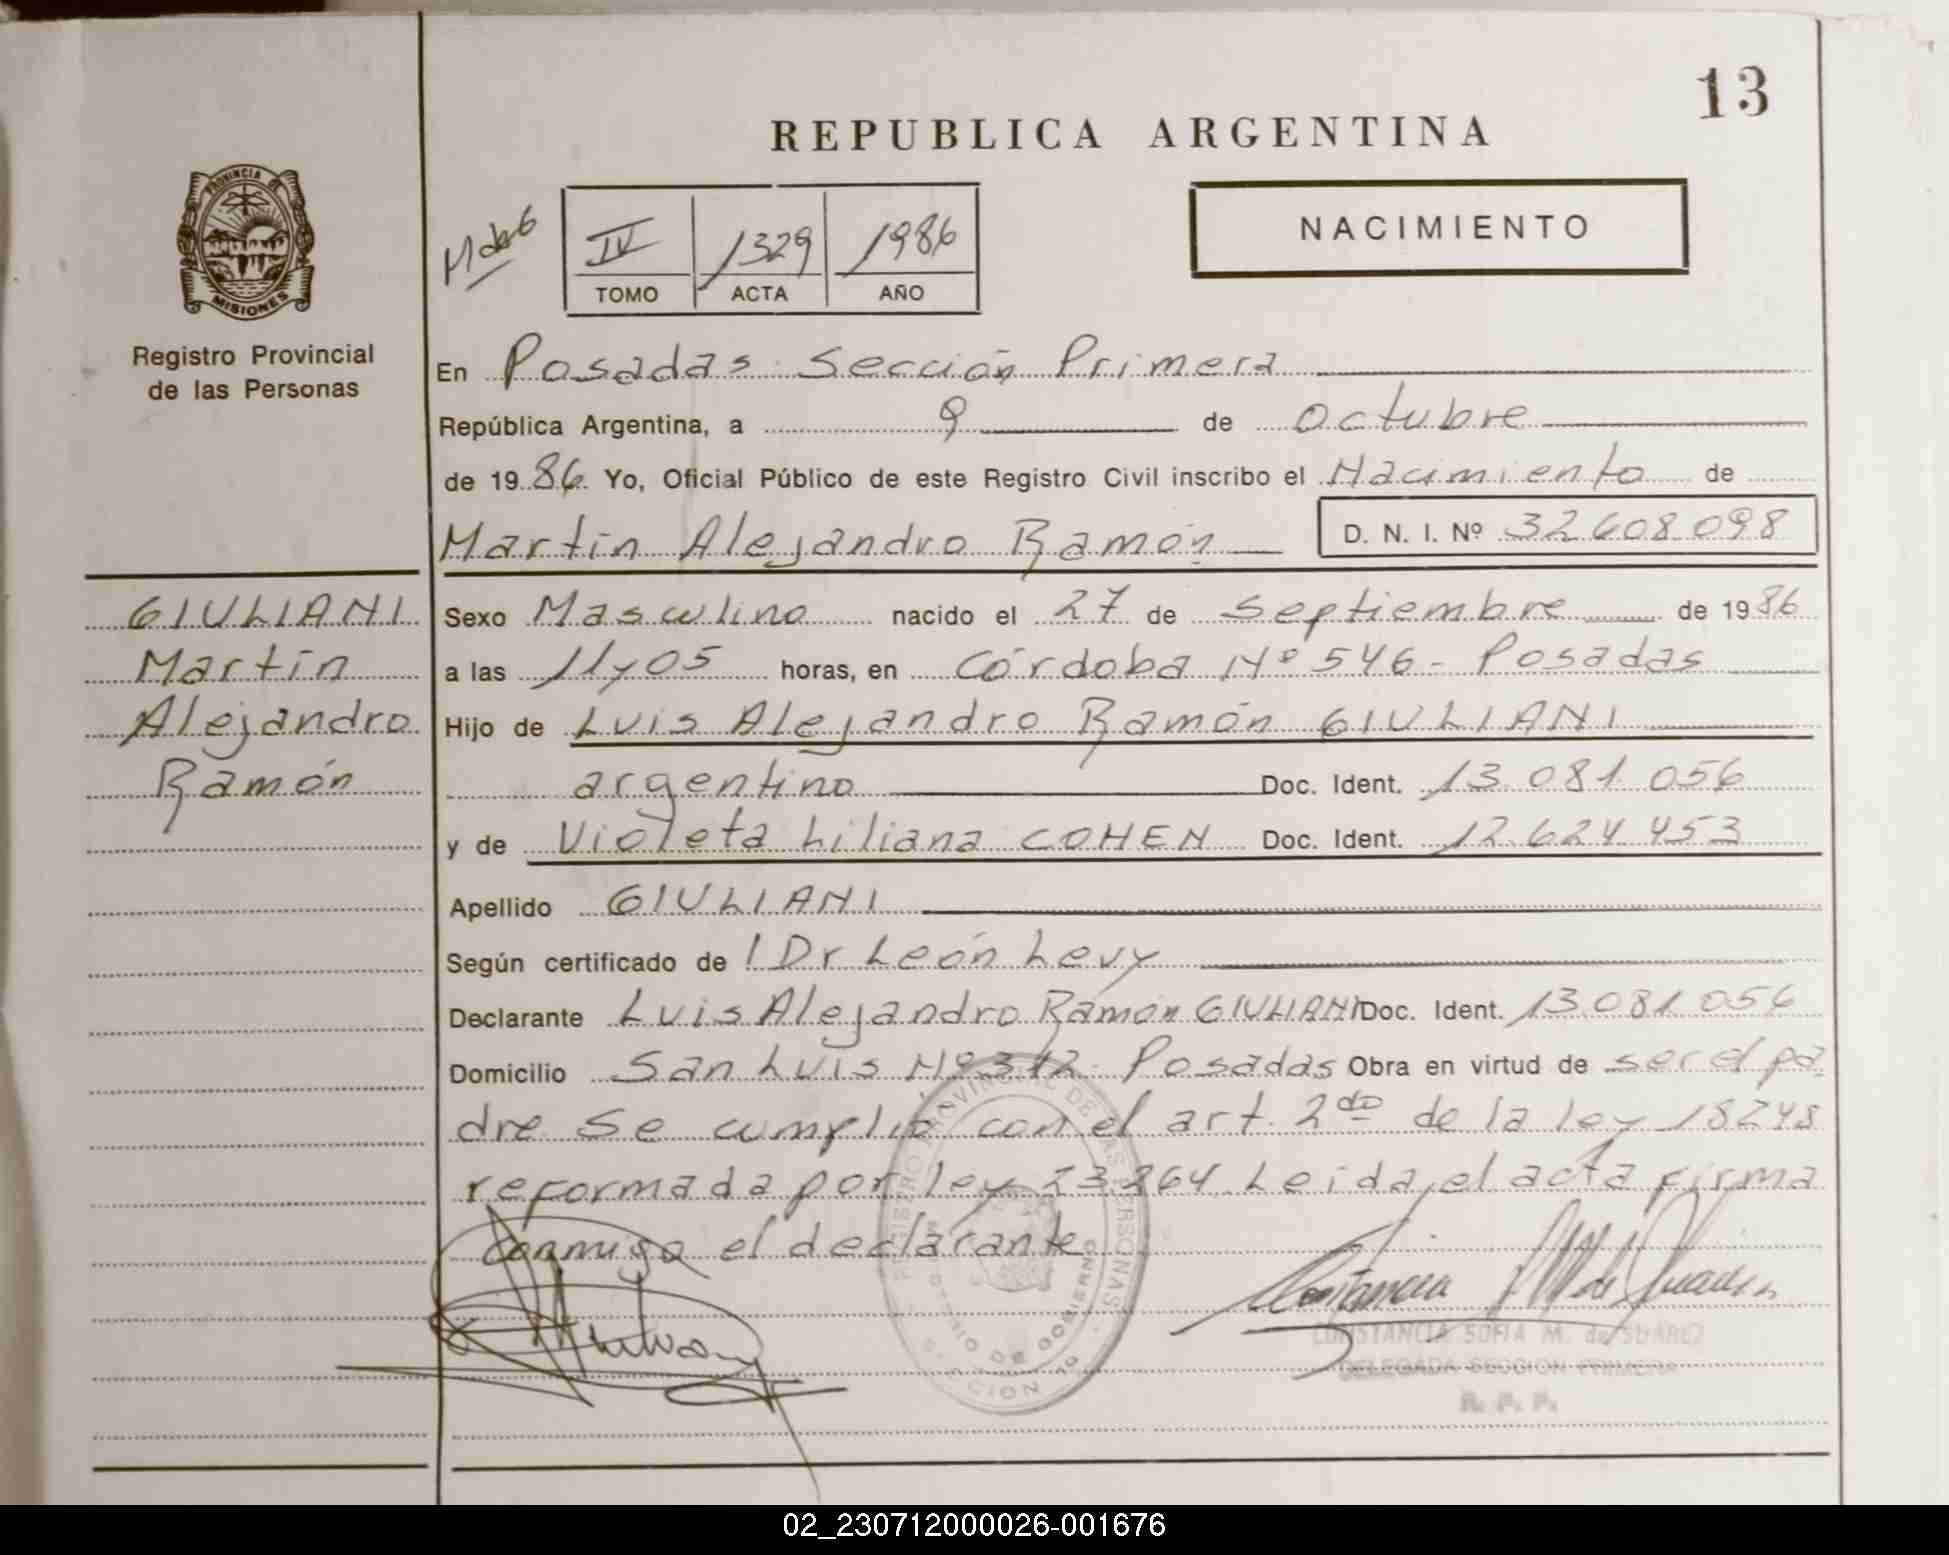 13
REPUBLICA ARGENTINA
NACIMIENTO
IV 1329 1986
TOMO ACTA AÑO
PROVINCIA DE
MISIONES
Registro Provincial
de las Personas
En Posadas Sección Primera
República Argentina, a 9 de octubre
de 19 86 Yo, Oficial Público de este Registro Civil inscribo el Nacimiento de
Martín Alejandro Ramón D. N. I. Nº 32.608.098
GIULIANI
Martín
Alejandro
Ramón
Sexo Masculino nacido el 27 de Septiembre de 19 86
a las 11y05 horas, en Córdoba Nº 546 - Posadas
Hijo de Luis Alejandro Ramón GIULIANI
argentino Doc. Ident. 13.081.056
y de Violeta Liliana COHEN Doc. Ident. 12.624.453
Apellido GIULIANI
Según certificado de l Dr León Levy
Declarante Luis Alejandro Ramón GIULIANI Doc. Ident. 13.081.056
Domicilio San Luis Nº 312 - Posadas Obra en virtud de ser el pa
dre Se cumplió con el art. 2do de la ley 18248
reformada por ley 23.264 Leida el acta firma
conmigo el declarante
REGISTRO PROVINCIAL DE LAS PERSONAS
MINISTERIO DE GOBIERNO
CONSTANCIA SOFIA M. de SUAREZ
DELEGADA SECCION PRIMERA
R. P. P.
02_230712000026-001676